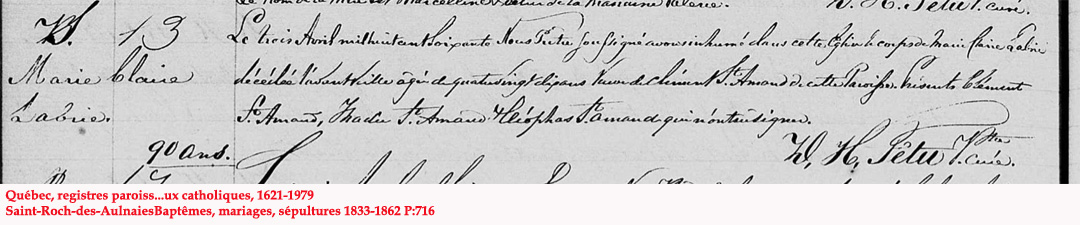 Le nom de la mère est Marcelline
D. H. Têtu Ptre. curé.
S. 13
Marie Claire
Labrie.
90 ans.
Le trois Avril mil huit cent soixante Nous Prêtre soussigné avons inhumé dans cette Eglise le corps de Marie Claire Labrie
décédée l'avant veille agée de quatre vingt dix ans Veuve de Clément St. Amand de cette Paroisse. Présents Clément
St. Amand, Thadée St. Amand Cléophas St. amand qui n'ont su signer.
D. H. Têtu Ptre curé.
Québec, registres paroiss...ux catholiques, 1621-1979
Saint-Roch-des-AulnaiesBaptêmes, mariages, sépultures 1833-1862 P:716